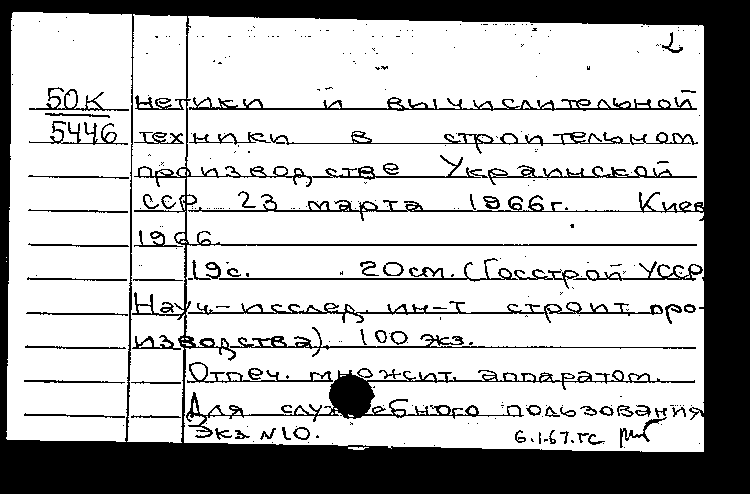 2
50К нетики и вычислительной
5446 техники в строительном
производстве Украинской
ССР. 23 марта 1966г. Киев,
1966.
19с. 20см. (Госстрой УССР.
Науч.-исслед. ин-т строит. про-
изводства). 100 экз.
Отпеч. множит. аппаратом.
Для служебного пользования
Экз N10. 6.1.67.гс